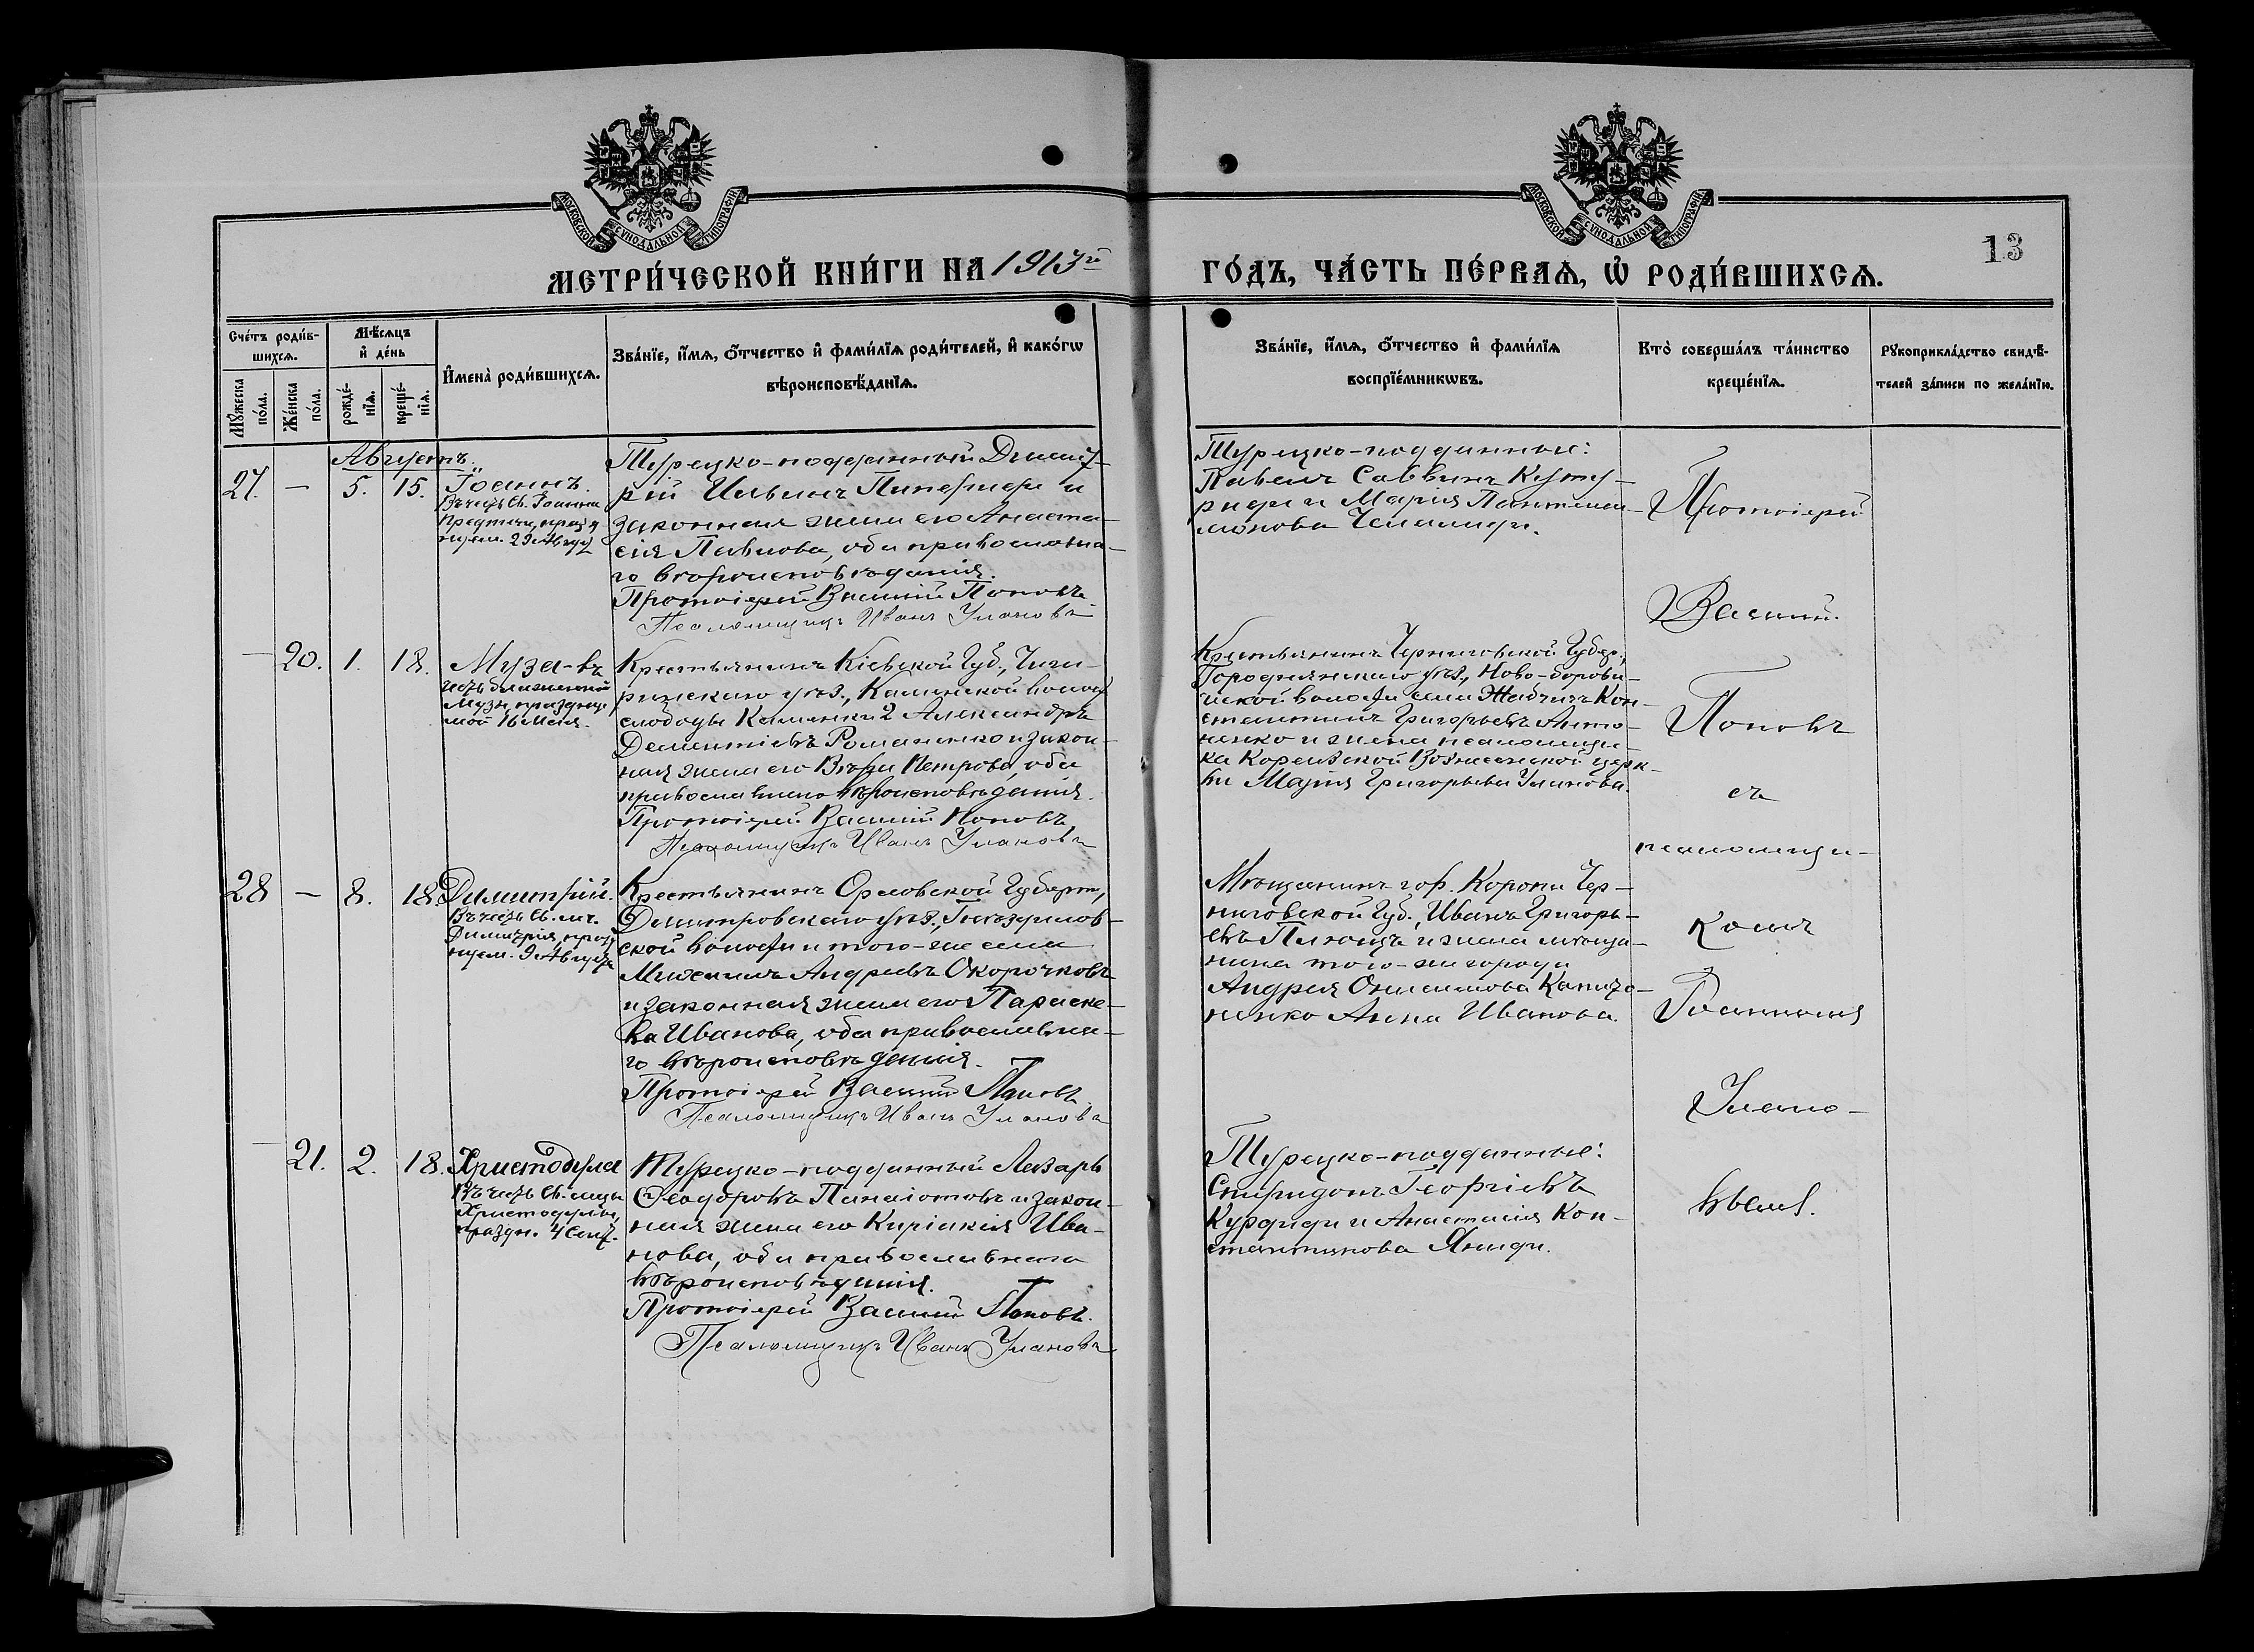 МОСКОВСКОЙ СѴНОДАЛЬНОЙ ТИПОГРАФІИ
МОСКОВСКОЙ СѴНОДАЛЬНОЙ ТИПОГРАФІИ
13
МЕТРИ́ЧЕСКОЙ КНИ́ГИ НА 1913й ГО́ДЪ, ЧА́СТЬ ПЕ́РВАѦ, Ѡ҆ РОДИ́ВШИХСѦ.
Сче́тъ роди́в-
шихсѧ.
Мꙋжеска по́ла.
Же́нска по́ла.
Мѣ́сѧцъ
и҆ де́нь
рожде́-
нїѧ.
креще́-
нїѧ.
И҆мена̀ роди́вшихсѧ.
Зва́нїе, и҆́мѧ, ѻ҆́тчество и҆ фами́лїѧ роди́телей, и҆ како́гѡ
вѣроисповѣ́данїѧ.
Зва́нїе, и҆́мѧ, ѻ҆́тчество и҆ фами́лїѧ
воспрїе́мникѡвъ.
Кто̀ соверша́лъ та́инство
креще́нїѧ.
Рꙋкоприкла́дство свидѣ́-
телей за́писи по жела́нїю.
Августъ.
27. — 5. 15. Іоаннъ.
Въ честь Св. Іоанна
Предтечи, праздн
29 Август
Турецко-подданный Димит-
рій Ильинъ и
законная жена его Анаста-
сія Павлова, оба православна-
го вѣроисповѣданія.
Протоіерей Василій Поповъ
Псаломщикъ Иванъ Улановъ
Турецко-подданные:
Павелъ Саввинъ
и Марія Пантелей-
монова
— 20. 1. 18. Муза-въ
честь
Музы, праздну-
мой 16 Мая.
Крестьянинъ Кіевской Губ., Чиги-
ринскаго уѣз., Каменской волост
слободы Каменки 2 Александръ
Дементіевъ Романенко и закон-
ная жена его Вѣра Петрова, оба
православнаго вѣроисповѣданія.
Протоіерей Василій Поповъ
Псаломщикъ Иванъ Улановъ
Крестьянинъ Черниговской Губер.,
Городнянскаго уѣз., Ново-борови-
цкой волости села Жабчичъ Кон-
стантинъ Григорьевъ Анто-
ненко и жена псаломщи-
ка Кореизской Вознесенской церк-
ви Марія Григорьева Уланова.
28 — 8. 18 Димитрій.
Въ честь Св. мч.
Димитрія, праз
нуем. 9 Августа
Крестьянинъ Орловской Губерн,
Дмитровскаго уѣз.,
ской волости и того-же села
Андреевъ Окорочковъ
и законная жена его Параске-
ва Иванова, оба православна-
го вѣроисповѣданія.
Протоіерей Василій Поповъ
Псаломщикъ Иванъ Улановъ
Мѣщанинъ гор. Коропа Чер-
ниговской Губ., Иванъ Григорь-
евъ и жена мѣща-
нина того-же города
Андрея Онисимова
Анна Иванова.
— 21. 2. 18. Христодула
Въ честь Св. мцы
Христодулы,
праздн. 4 Сент.
Турецко-подданный Лазарь
Ѳеодоровъ Панаіотовъ и закон-
ная жена его Киріакія Ива-
нова, оба православнаго
вѣроисповѣданія.
Протоіерей Василій Поповъ.
Псаломщикъ Иванъ Улановъ
Турецко-подданные:
Спиридонъ Георгіевъ
и Анастасія Кон-
стантинова
Протоіерей
Василій
Поповъ
съ
псаломщи-
комъ
Іоанномъ
Улано-
вымъ.